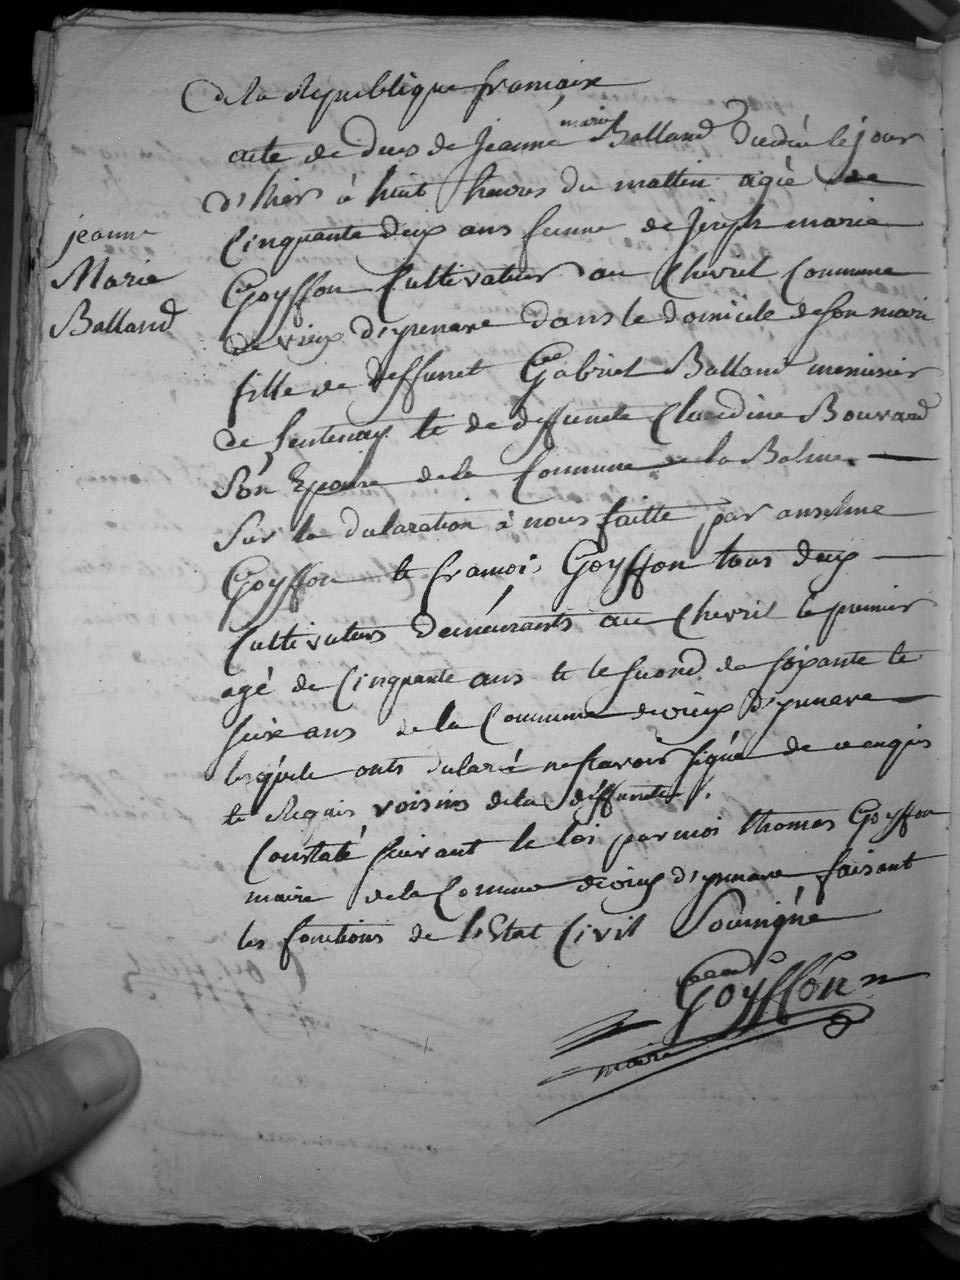 de la Republique francaise
acte de deces de Jeanne marie Balland decedée le jour
d'hier à huit heures du mattin agée de
Cinquante deux ans femme de Joseph marie
Goyffon Cultivateur au Chevril Commune
de vieux d'yzenave dans le domicile de son mari
fille de deffunct Gabriel Balland menusier
de Lentenay et de deffuncte Claudine Bouvard
Son Epouse de la Commune de la Balme
Sur la declaration à nous faitte par anselme
Goyffon et francois Goyffon tous deux
Cultivateurs demeurants au Chevril le premier
agé de Cinquante ans et le second de soixante et
seize ans de la Commune de vieux d'yzenave
lesquels onts declaré ne scavoir signé de ce enquis
et Requis voisins de la deffuncte.
Constaté suivant la loi par moi thomas Goyffon
maire de la Commune de vieux d'yzenave faisant
les fonctions de l'Etat Civil Soussigné
Goyffon
maire
jeanne
Marie
Balland